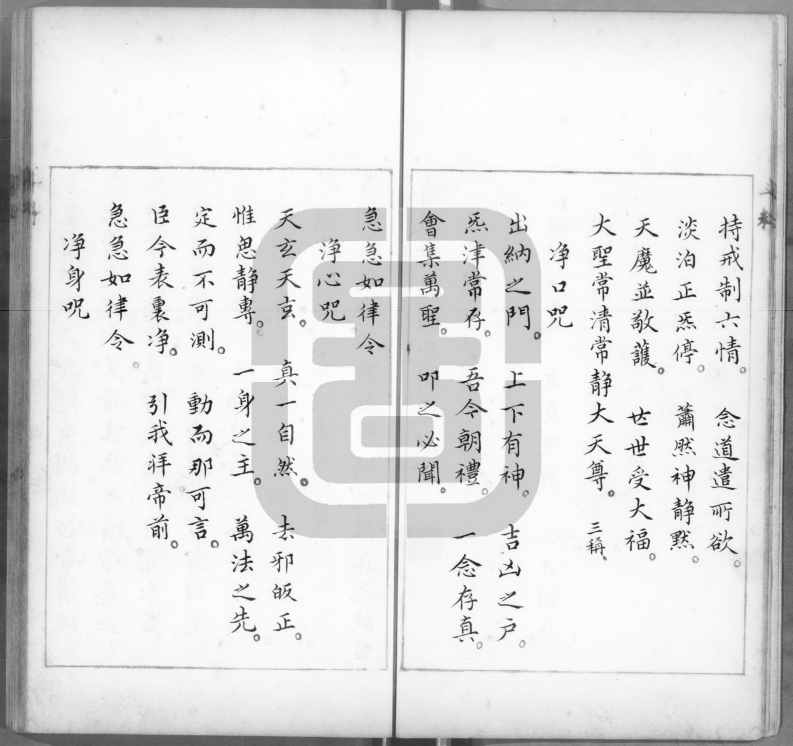 持戒制六情。 念道遣所欲。
淡泊正炁停。 蕭然神静黙。
天魔並敬護。 世世受大福。
大聖常清常静大天尊。三稱、
净口咒
出納之門。 上下有神。 吉凶之户。
炁津常存。 吾今朝禮。 一念存真。
會集萬聖。 叩之必聞。
急急如律令
浄心咒
天玄天玄。 真一自然。 去邪皈正。
惟思静專。 一身之主。 萬法之先。
定而不可測。 動而那可言。
臣今表裏净。 引我拜帝前。
急急如律令。
净身咒